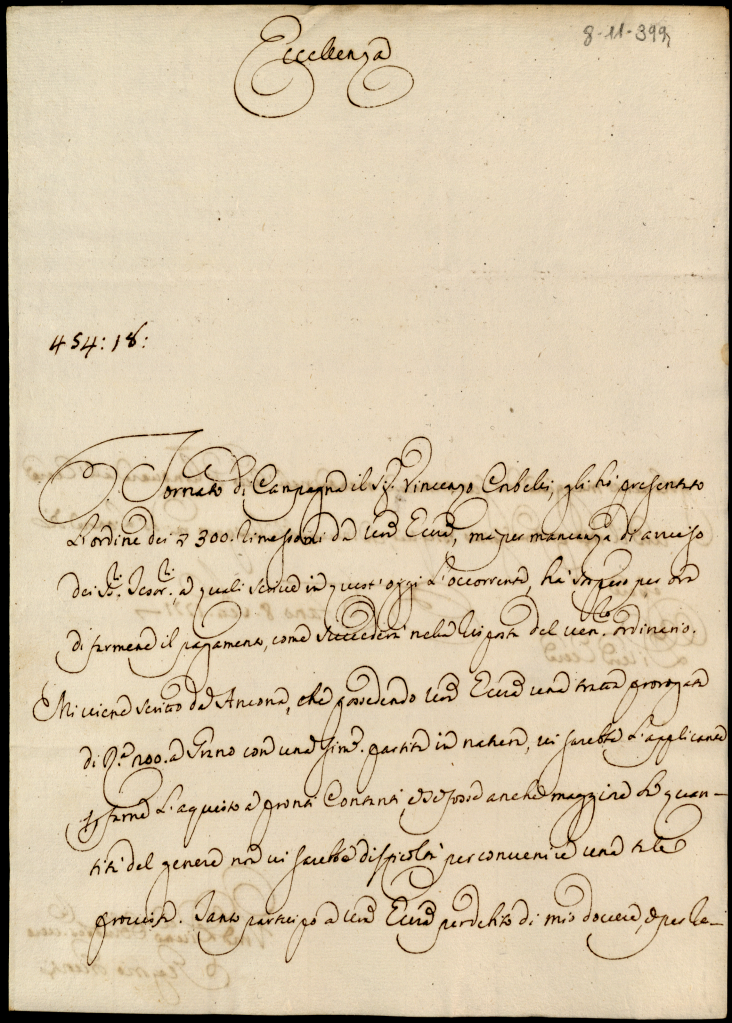 8-11-399
Eccellenza
454:18:
Tornato di Campagna il Sig.r Vincenzo gli hò presentato
L'ordine dei 300. rimessomi da Vra Eccza, mà per mancanza di avviso
dei SS.ri Tesor.ri, à quali scrive in quest'oggi L'occorrente, hà sospeso per ora
di farmene il pagamento, come succederà nella risposta del ven.te ordinario.
Mi viene scritto da Ancona, che possedendo Vra Eccza una tratta prorogata
di 200. à Grano con una sim.e partita in natura, vi sarebbe L'applicante
farne L'aquisto à pronti Contanti, e se fosse anche maggiore la quan-
tità del genere non vi sarebbe difficoltà per convenire una tale
provista. Tanto partecipo à Vra Eccza per debito di mio dovere, e per le-